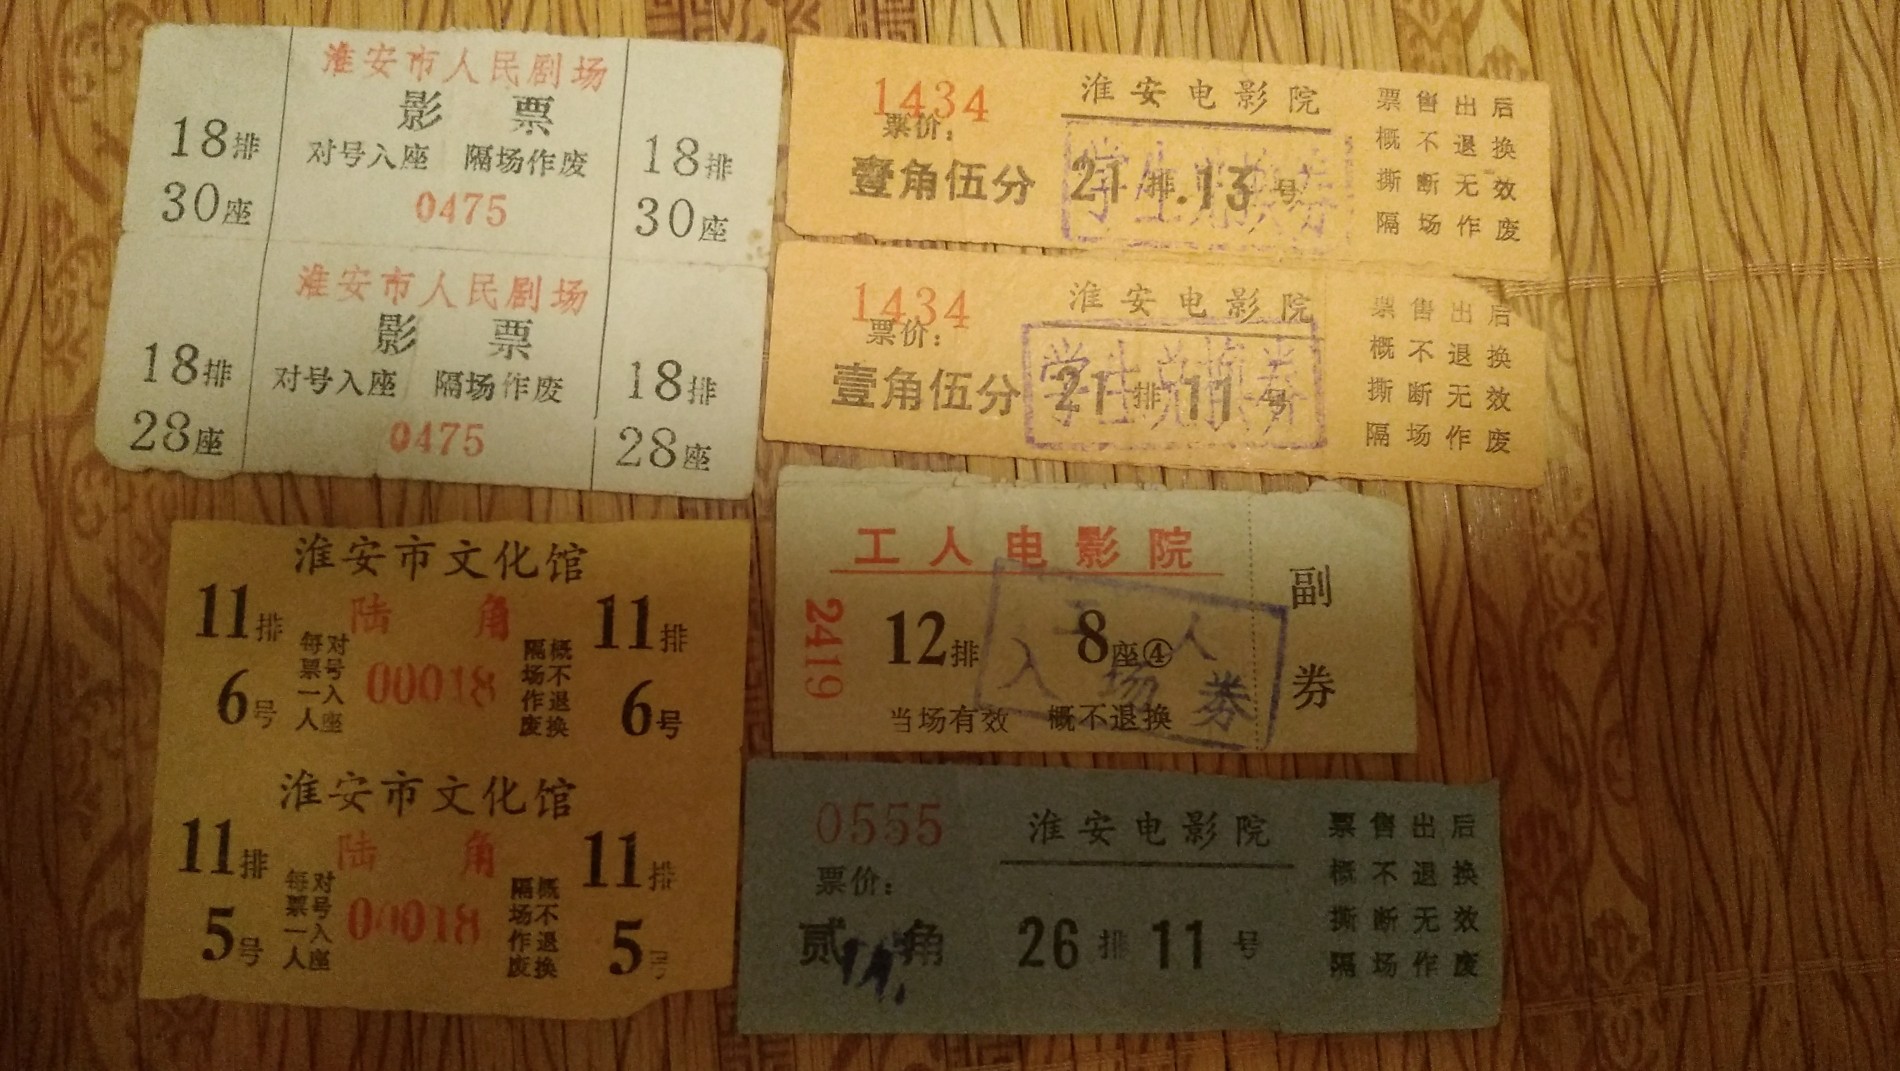 淮安市人民剧场
影 票
18排 对号入座 隔场作废 18排
30座 0475 30座
淮安市人民剧场
影 票
18排 对号入座 隔场作废 18排
28座 0475 28座
淮安市文化馆
11排 陆 角 11排
6号 00018 6号
每票一人
对号入座
隔场作废
概不退换
淮安市文化馆
11排 陆 角 11排
5号 00018 5号
每票一人
对号入座
隔场作废
概不退换
1434 淮安电影院
票价:
壹角伍分 21排13号
学生兑换券
票售出后
概不退换
撕断无效
隔场作废
1434 淮安电影院
票价:
壹角伍分 21排11号
学生兑换券
票售出后
概不退换
撕断无效
隔场作废
工人电影院
2419
12排 8座④
当场有效 概不退换
人
入场券
副券
0555 淮安电影院
票价:
贰角 26排11号
票售出后
概不退换
撕断无效
隔场作废